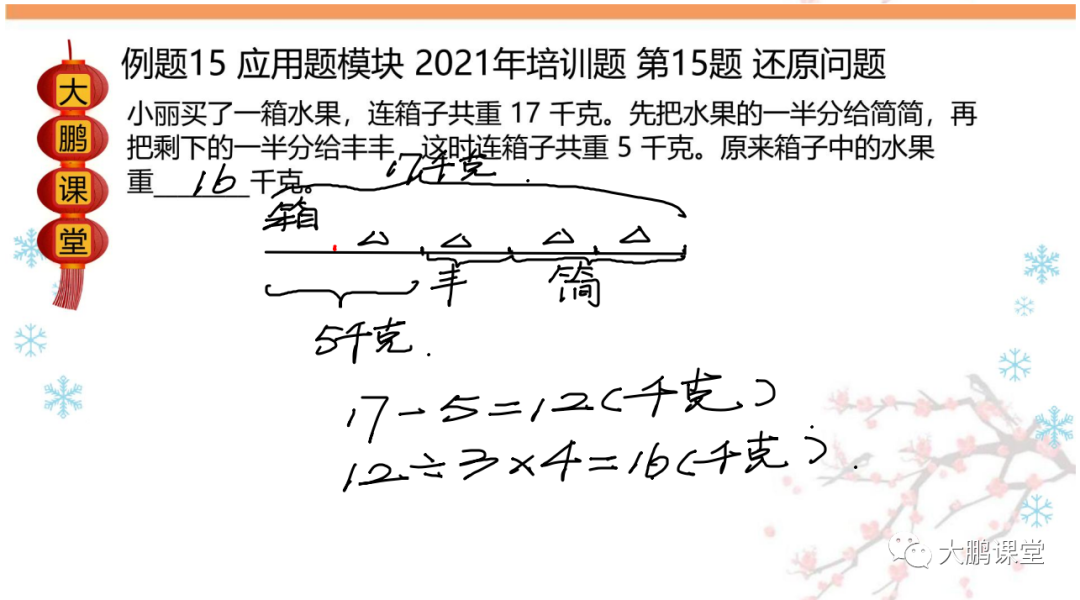 例题15 应用题模块 2021年培训题 第15题 还原问题
大鹏课堂
小丽买了一箱水果，连箱子共重 17 千克。先把水果的一半分给简简，再
把剩下的一半分给丰丰，这时连箱子共重 5 千克。原来箱子中的水果
重 16 千克。
17千克.
箱
△ △ △ △
丰 简
5千克.
17-5=12(千克)
12÷3×4=16(千克).
大鹏课堂